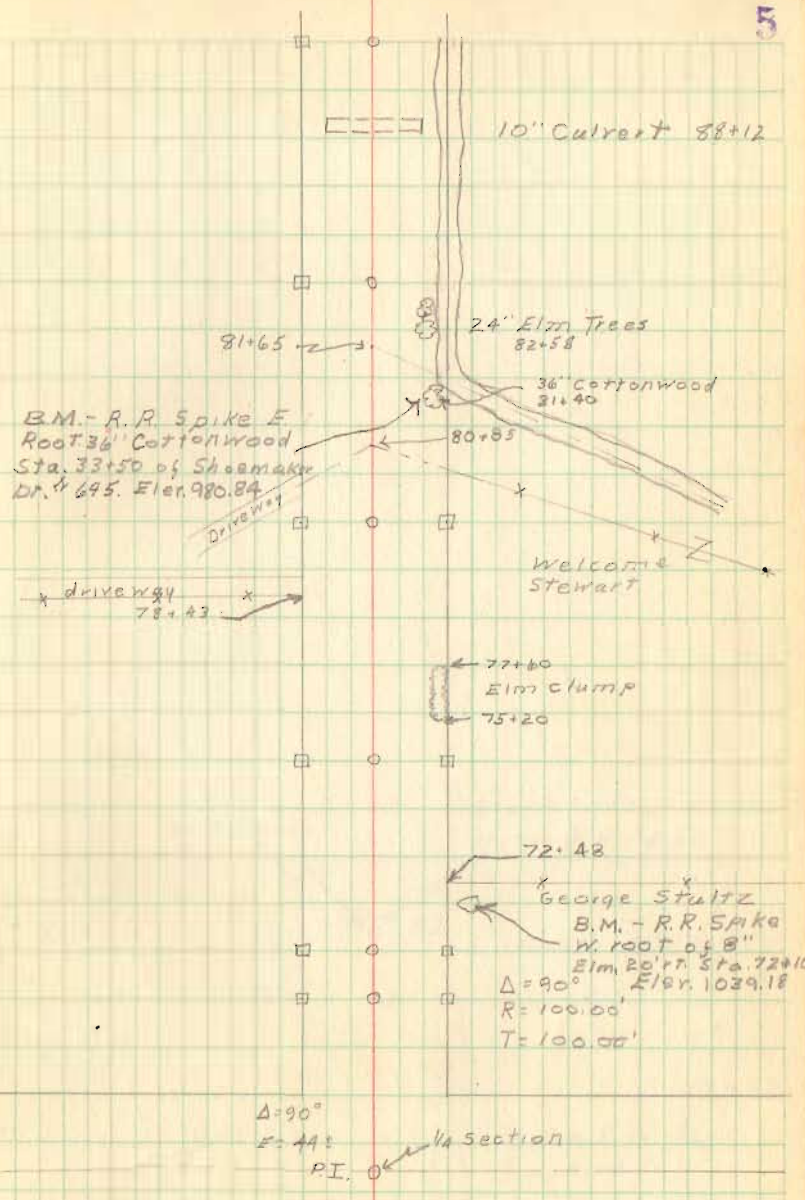 5
10" Culvert 88+12
24" Elm Trees
82+58
81+65
36" Cottonwood
81+40
B.M.- R.R. Spike E
Root 36" Cottonwood
Sta. 33+50 of Shoemaker
Dr. 645. Elev. 980.84
80+85
Driveway
Welcome
Stewart
driveway
78+43
77+60
Elm Clump
75+20
72+48
George Stultz
B.M. - R.R. Spike
W. root of 8"
Elm, 20' rt. Sta. 72+10
Δ=90° Elev. 1039.18
R= 100.00'
T= 100.00'
Δ=90°
1/4 Section
P.I.